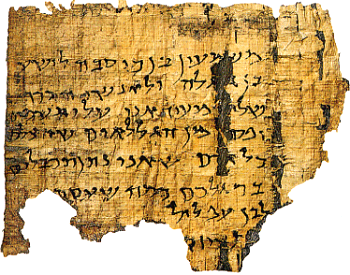 משמעון בן כוסבה לישע
בן גלגלה ולאנשי הכרך
שלום מעיד אני עלי תשמים
מן הגללאים שהצלכם
כל אדם שאני נתן תכבלים
ברגלכם כמה
לבן עפלול